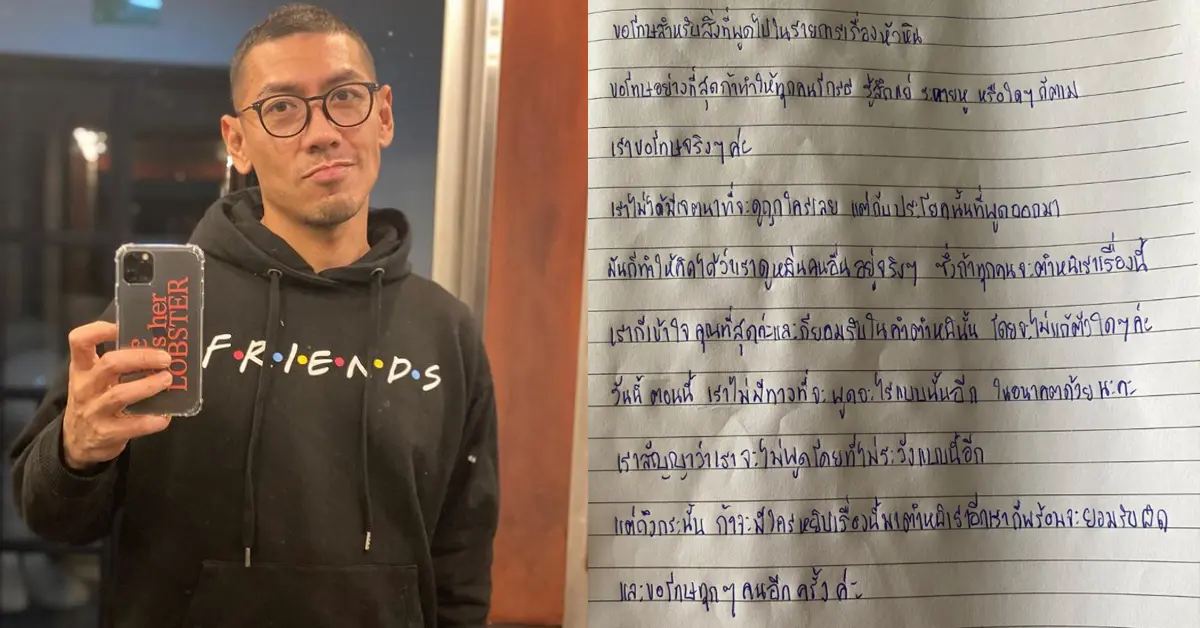 he
is her
LOBSTER
F•R•I•E•N•D•S
ขอโทษสำหรับสิ่งที่พูดไปในรายการเรื่องหัวหิน
ขอโทษอย่างที่สุดถ้าทำให้ทุกคนโกรธ รู้สึกแย่ ระคายหู หรือใดๆ ก็ตาม
เราขอโทษจริงๆ ค่ะ
เราไม่ได้มีเจตนาที่จะดูถูกใครเลย แต่กับประโยคนั้นที่พูดออกมา
มันก็ทำให้คิดได้ว่าเราดูหมิ่นคนอื่นอยู่จริงๆ ซึ่งถ้าทุกคนจะตำหนิเราเรื่องนี้
เราก็เข้าใจคุณที่สุดค่ะและก็ยอมรับในคำตำหนินั้น โดยจะไม่แก้ตัวใดๆ ค่ะ
วันนี้ ตอนนี้ เราไม่มีทางที่จะพูดอะไรแบบนั้นอีก ในอนาคตด้วยนะคะ
เราสัญญาว่าเราจะไม่พูดโดยที่ไม่ระวังแบบนี้อีก
แต่ถึงกระนั้น ถ้าจะมีใครหยิบเรื่องนี้มาตำหนิเราอีกเราก็พร้อมจะยอมรับผิด
และขอโทษทุกๆ คนอีกครั้งค่ะ